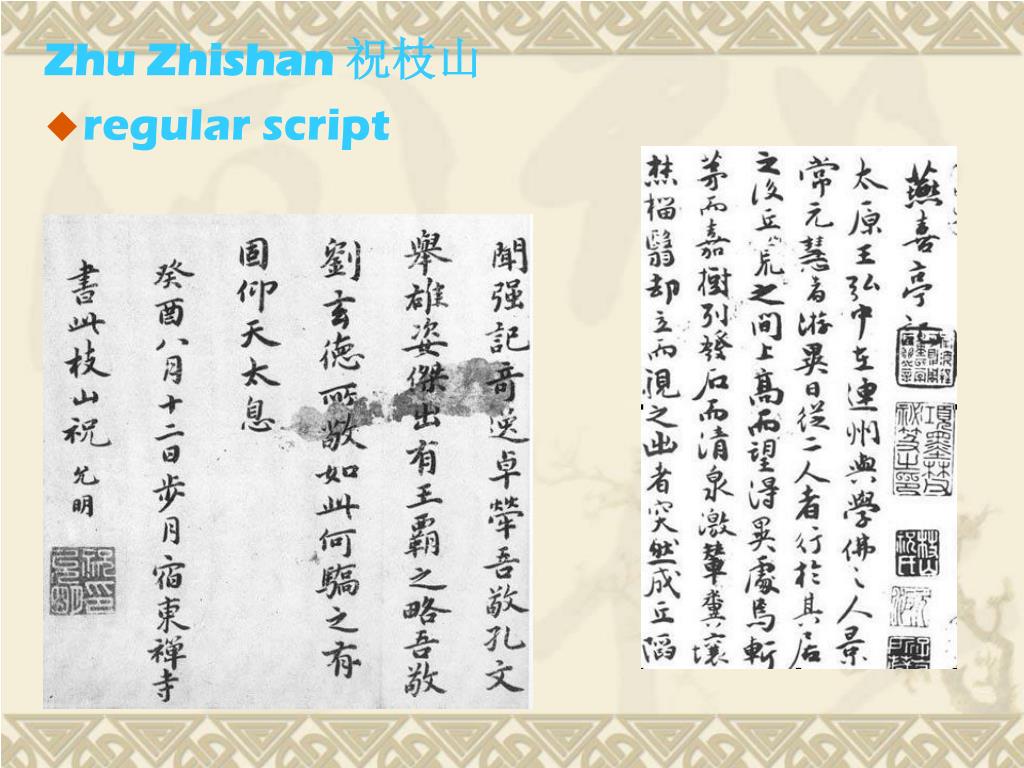 Zhu Zhishan 祝枝山
regular script
聞强記奇逸卓犖吾敬孔文
舉雄姿傑出有王覇之略吾敬
劉玄德所敬如此何驕之有
固仰天太息
癸酉八月十二日步月宿東禪寺
書此枝山祝允明
燕喜亭記
太原王弘中在連州與學佛之人景
常元慧者游異日從二人者行於其居
之後丘荒之間上高而望得異處焉斬
茅而嘉樹列發石而清泉激輦糞壤
焚榴翳却立而視之出者突然成丘陷